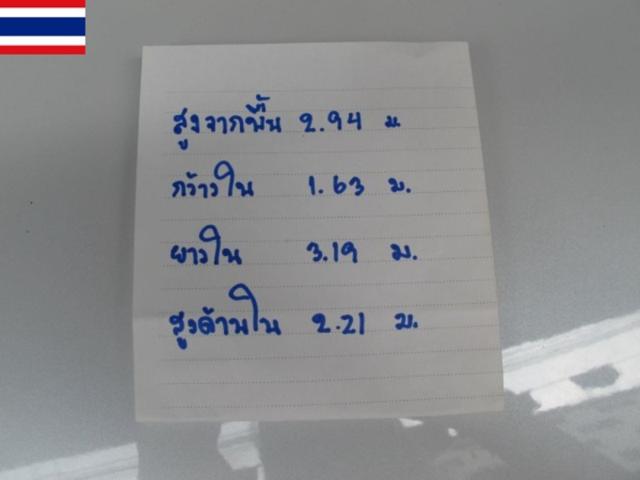 สูงจากพื้น 2.94 ม.
กว้างใน 1.63 ม.
ยาวใน 3.19 ม.
สูงด้านใน 2.21 ม.